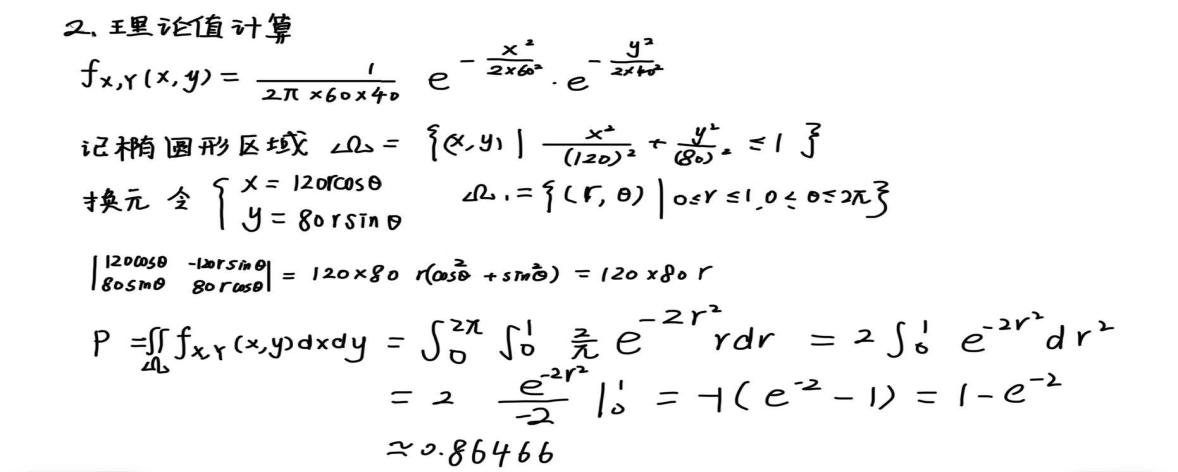 2、理论值计算
f_{X,Y}(x,y) = \frac{1}{2π×60×40} e^{-\frac{x²}{2×60²}} · e^{-\frac{y²}{2×40²}}
记椭圆形区域 Ω = {(x,y) | \frac{x²}{(120)²} + \frac{y²}{(80)²} ≤ 1}
换元 令 { x = 120rcosθ y = 80rsinθ Ω₁ = {(r,θ) | 0≤r≤1, 0≤θ≤2π}
|120cosθ -120rsinθ 80sinθ 80rcosθ| = 120×80 r(cos²θ + sin²θ) = 120×80 r
P = ∬_Ω f_{X,Y}(x,y)dxdy = ∫₀^{2π} ∫₀¹ \frac{2}{π} e^{-2r²} rdr = 2∫₀¹ e^{-2r²} dr²
= 2 \frac{e^{-2r²}}{-2} |₀¹ = -1(e^{-2} - 1) = 1 - e^{-2}
≈ 0.86466